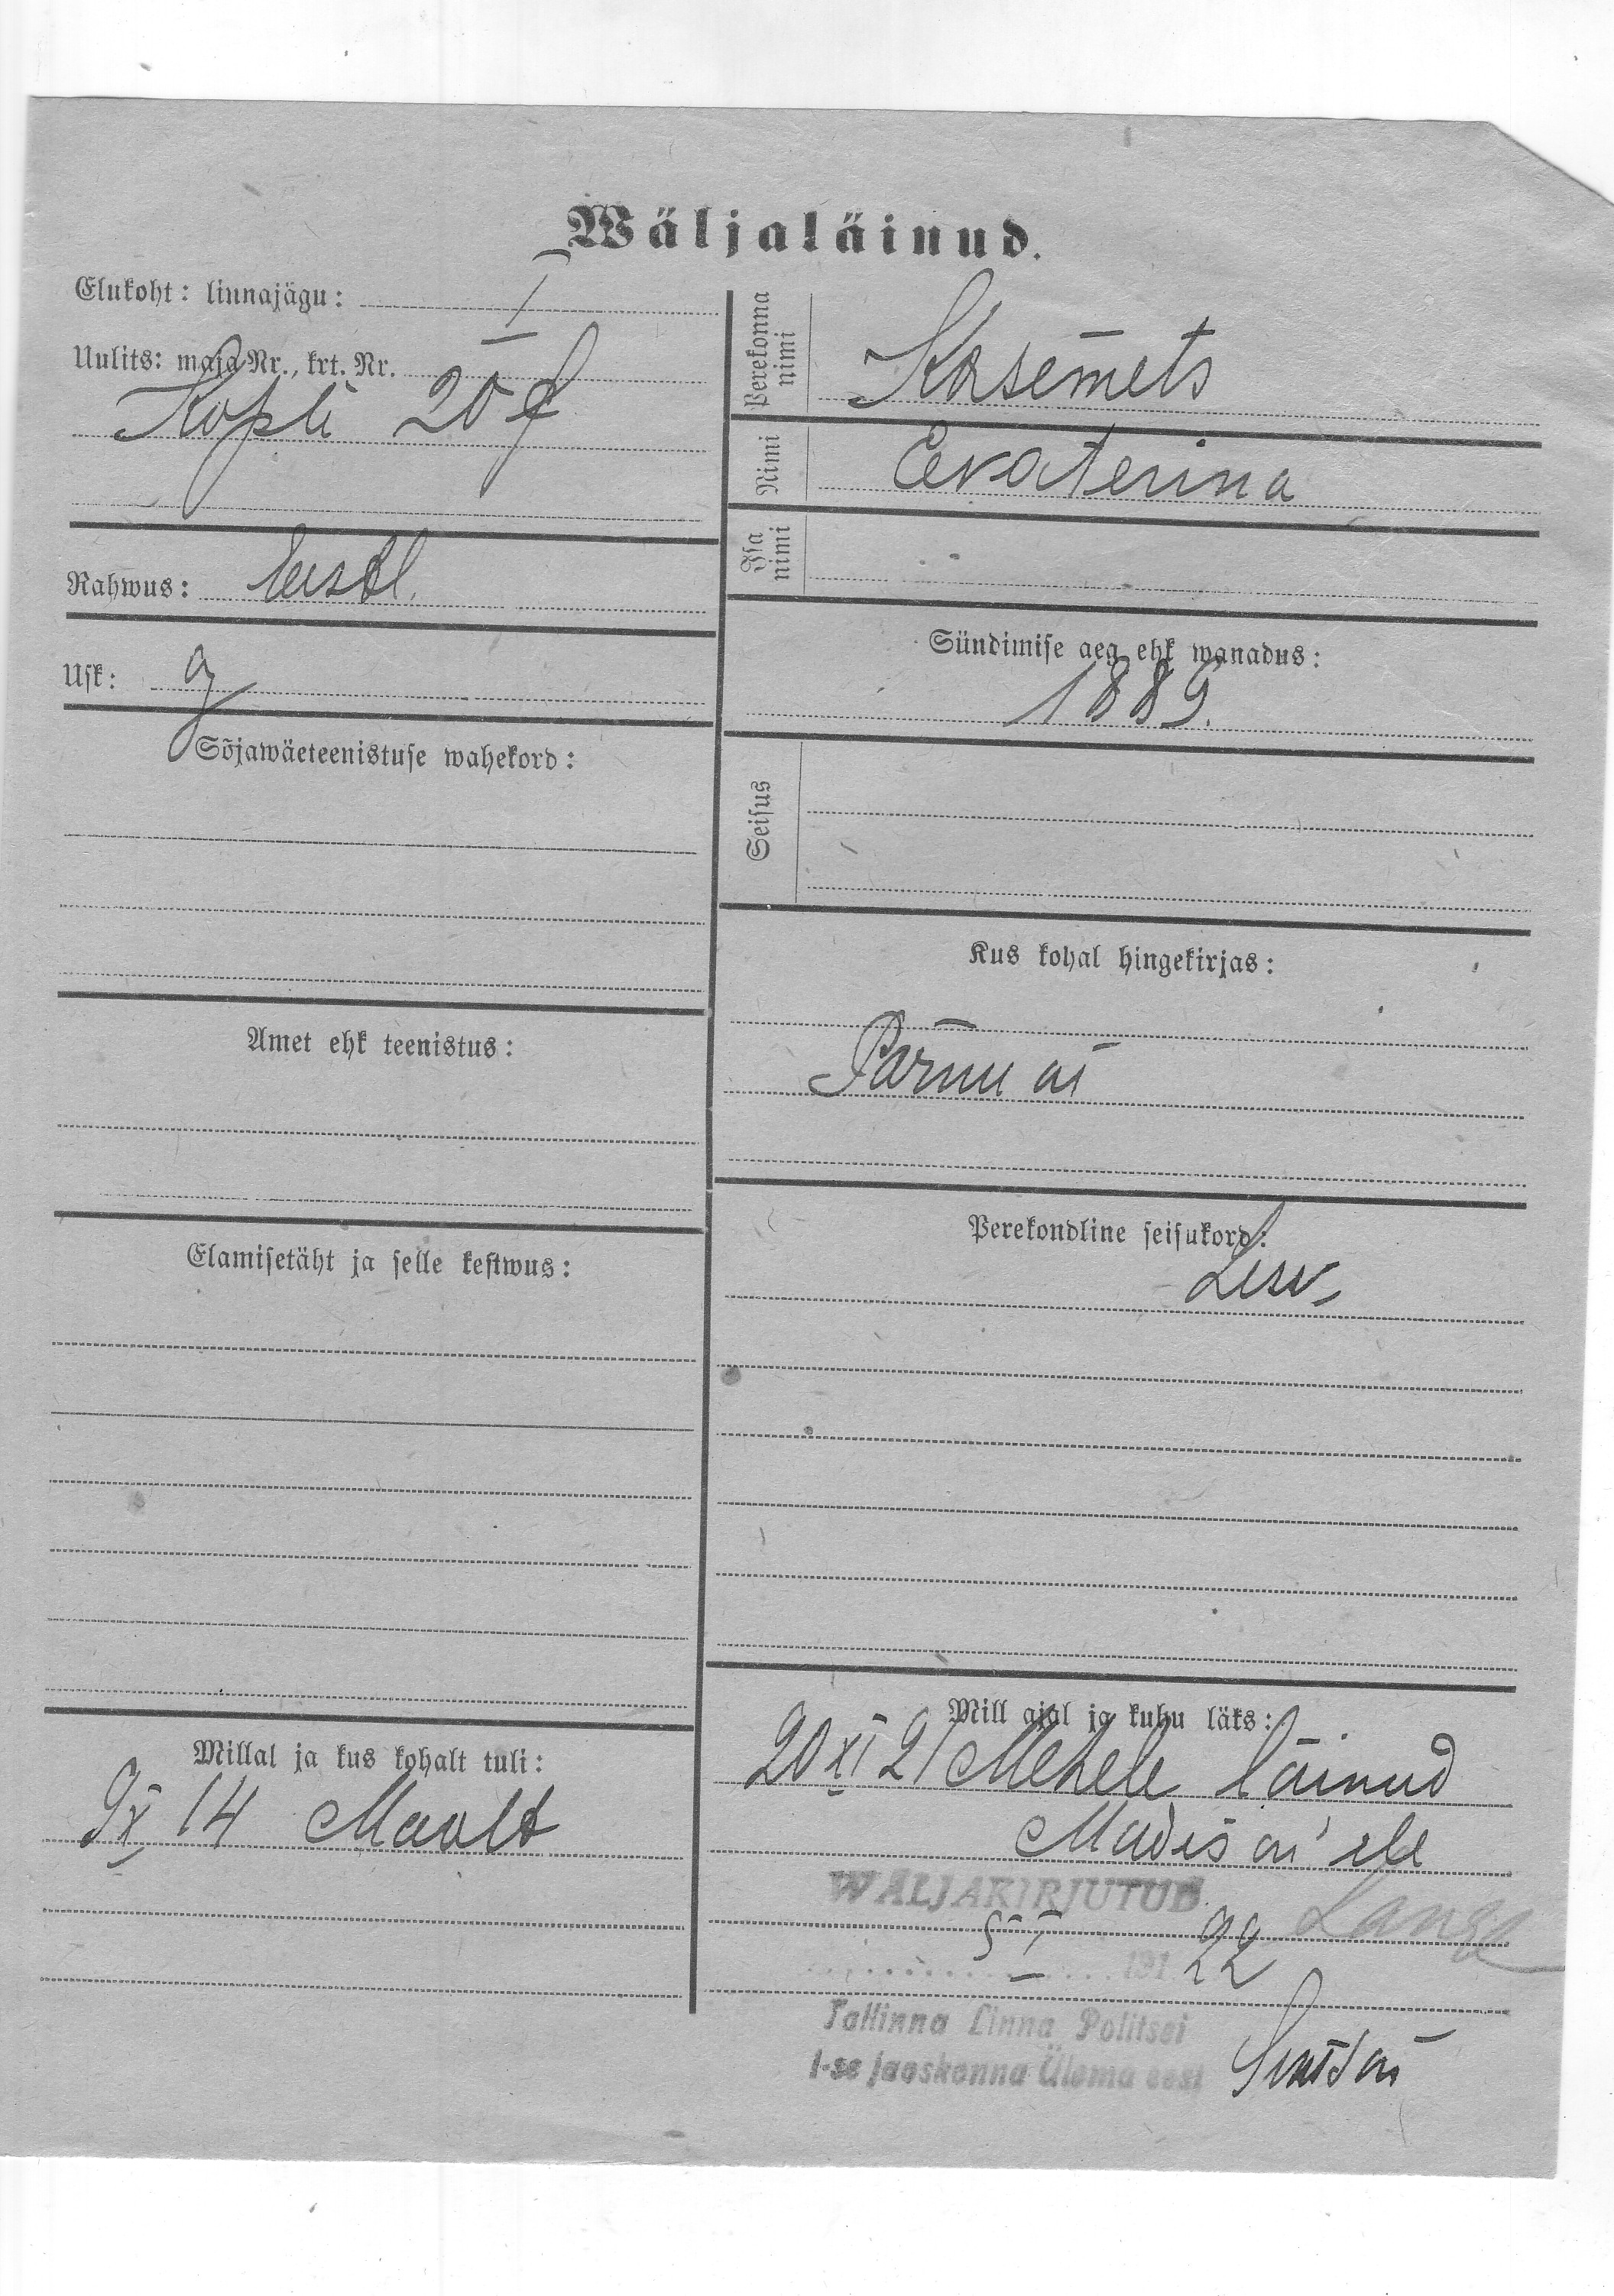 Wäljaläinud.
Elukoht: linnajägu: I
Uulits: maja Nr., krt. Nr.
Kopli 20
Rahwus: Eestl.
Usk:
Sõjawäeteenistuse wahekord:
Amet ehk teenistus:
Elamisetäht ja selle kestwus:
Millal ja kus kohalt tuli:
14 Maalt
Perekonna nimi Kasemets
Nimi Ekaterina
Isa nimi
Sündimise aeg ehk wanadus:
1889.
Seisus
Kus kohal hingekirjas:
Pärnu
Perekondline seisukord:
Lesk
Mill ajal ja kuhu läks:
20 XI 21 Mehele läinud
WÄLJAKIRJUTUD
Lange
5 I 191 22
Tallinna Linna Politsei
I-se jaoskonna Ülema eest